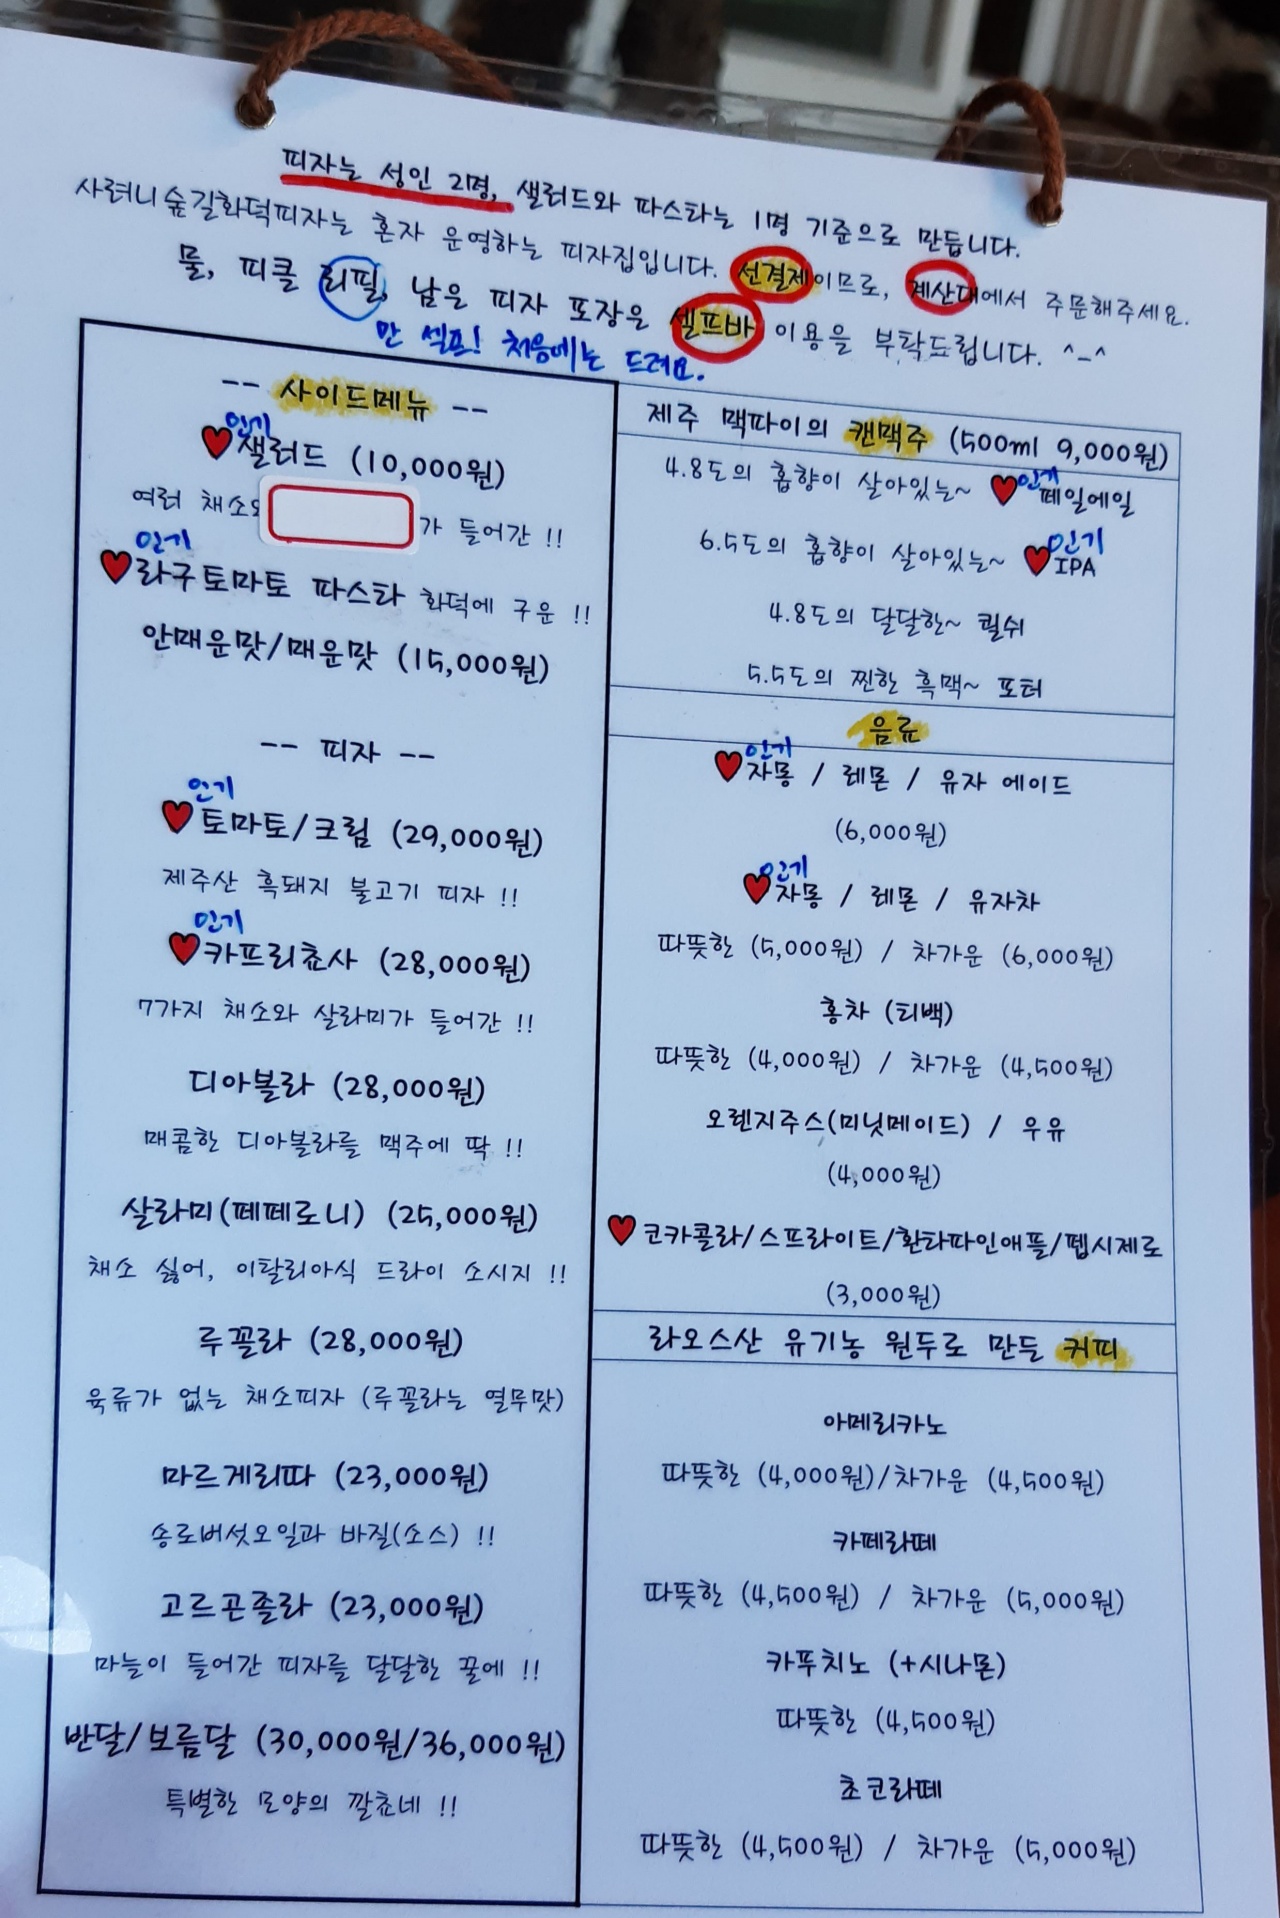 피자는 성인 2명, 샐러드와 파스타는 1명 기준으로 만듭니다.
사려니숲길화덕피자는 혼자 운영하는 피자집입니다. 선결제이므로, 계산대에서 주문해주세요.
물, 피클 리필, 남은 피자 포장은 셀프바 이용을 부탁드립니다. ^_^
만 셀프! 처음에는 드려요.
-- 사이드메뉴 --
인기
♥샐러드 (10,000원)
여러 채소와 가 들어간 !!
인기
♥라구토마토 파스타 화덕에 구운 !!
안매운맛/매운맛 (15,000원)
-- 피자 --
인기
♥토마토/크림 (29,000원)
제주산 흑돼지 불고기 피자 !!
인기
♥카프리쵸사 (28,000원)
7가지 채소와 살라미가 들어간 !!
디아볼라 (28,000원)
매콤한 디아볼라를 맥주에 딱 !!
살라미(페페로니) (25,000원)
채소 싫어, 이탈리아식 드라이 소시지 !!
루꼴라 (28,000원)
육류가 없는 채소피자 (루꼴라는 열무맛)
마르게리따 (23,000원)
송로버섯오일과 바질(소스) !!
고르곤졸라 (23,000원)
마늘이 들어간 피자를 달달한 꿀에 !!
반달/보름달 (30,000원/36,000원)
특별한 모양의 깔쵸네 !!
제주 맥파이의 캔맥주 (500ml 9,000원)
4.8도의 홉향이 살아있는~ ♥인기 페일에일
6.5도의 홉향이 살아있는~ ♥인기 IPA
4.8도의 달달한~ 쾰쉬
5.5도의 찐한 흑맥~ 포터
음료
인기
♥자몽 / 레몬 / 유자 에이드
(6,000원)
인기
♥자몽 / 레몬 / 유자차
따뜻한 (5,000원) / 차가운 (6,000원)
홍차 (티백)
따뜻한 (4,000원) / 차가운 (4,500원)
오렌지주스(미닛메이드) / 우유
(4,000원)
♥코카콜라/스프라이트/환타파인애플/펩시제로
(3,000원)
라오스산 유기농 원두로 만든 커피
아메리카노
따뜻한 (4,000원)/차가운 (4,500원)
카페라떼
따뜻한 (4,500원) / 차가운 (5,000원)
카푸치노 (+시나몬)
따뜻한 (4,500원)
초코라떼
따뜻한 (4,500원) / 차가운 (5,000원)